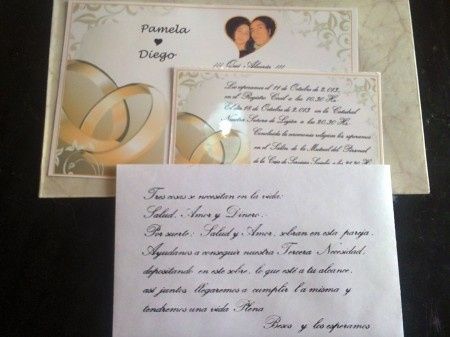 Pamela
Diego
¡¡¡ Qué Alegría !!!
Los esperamos el 11 de Octubre de 2.013,
en el Registro Civil a las 10.30 Hs.
El Día 18 de Octubre de 2.013, en la Catedral
Nuestra Señora de Luján a las 20.30 Hs.
Concluída la ceremonia religiosa los esperamos
en el Salón de la Mutual del Personal
de la Caja de Servicios Sociales
Tres cosas se necesitan en la vida:
Salud, Amor y Dinero.
Por suerte; Salud y Amor, sobran en esta pareja.
Ayudanos a conseguir nuestra Tercera Necesidad,
depositando en este sobre, lo que esté a tu alcance,
así juntos llegaremos a cumplir la misma y
tendremos una vida Plena
Besos y los esperamos